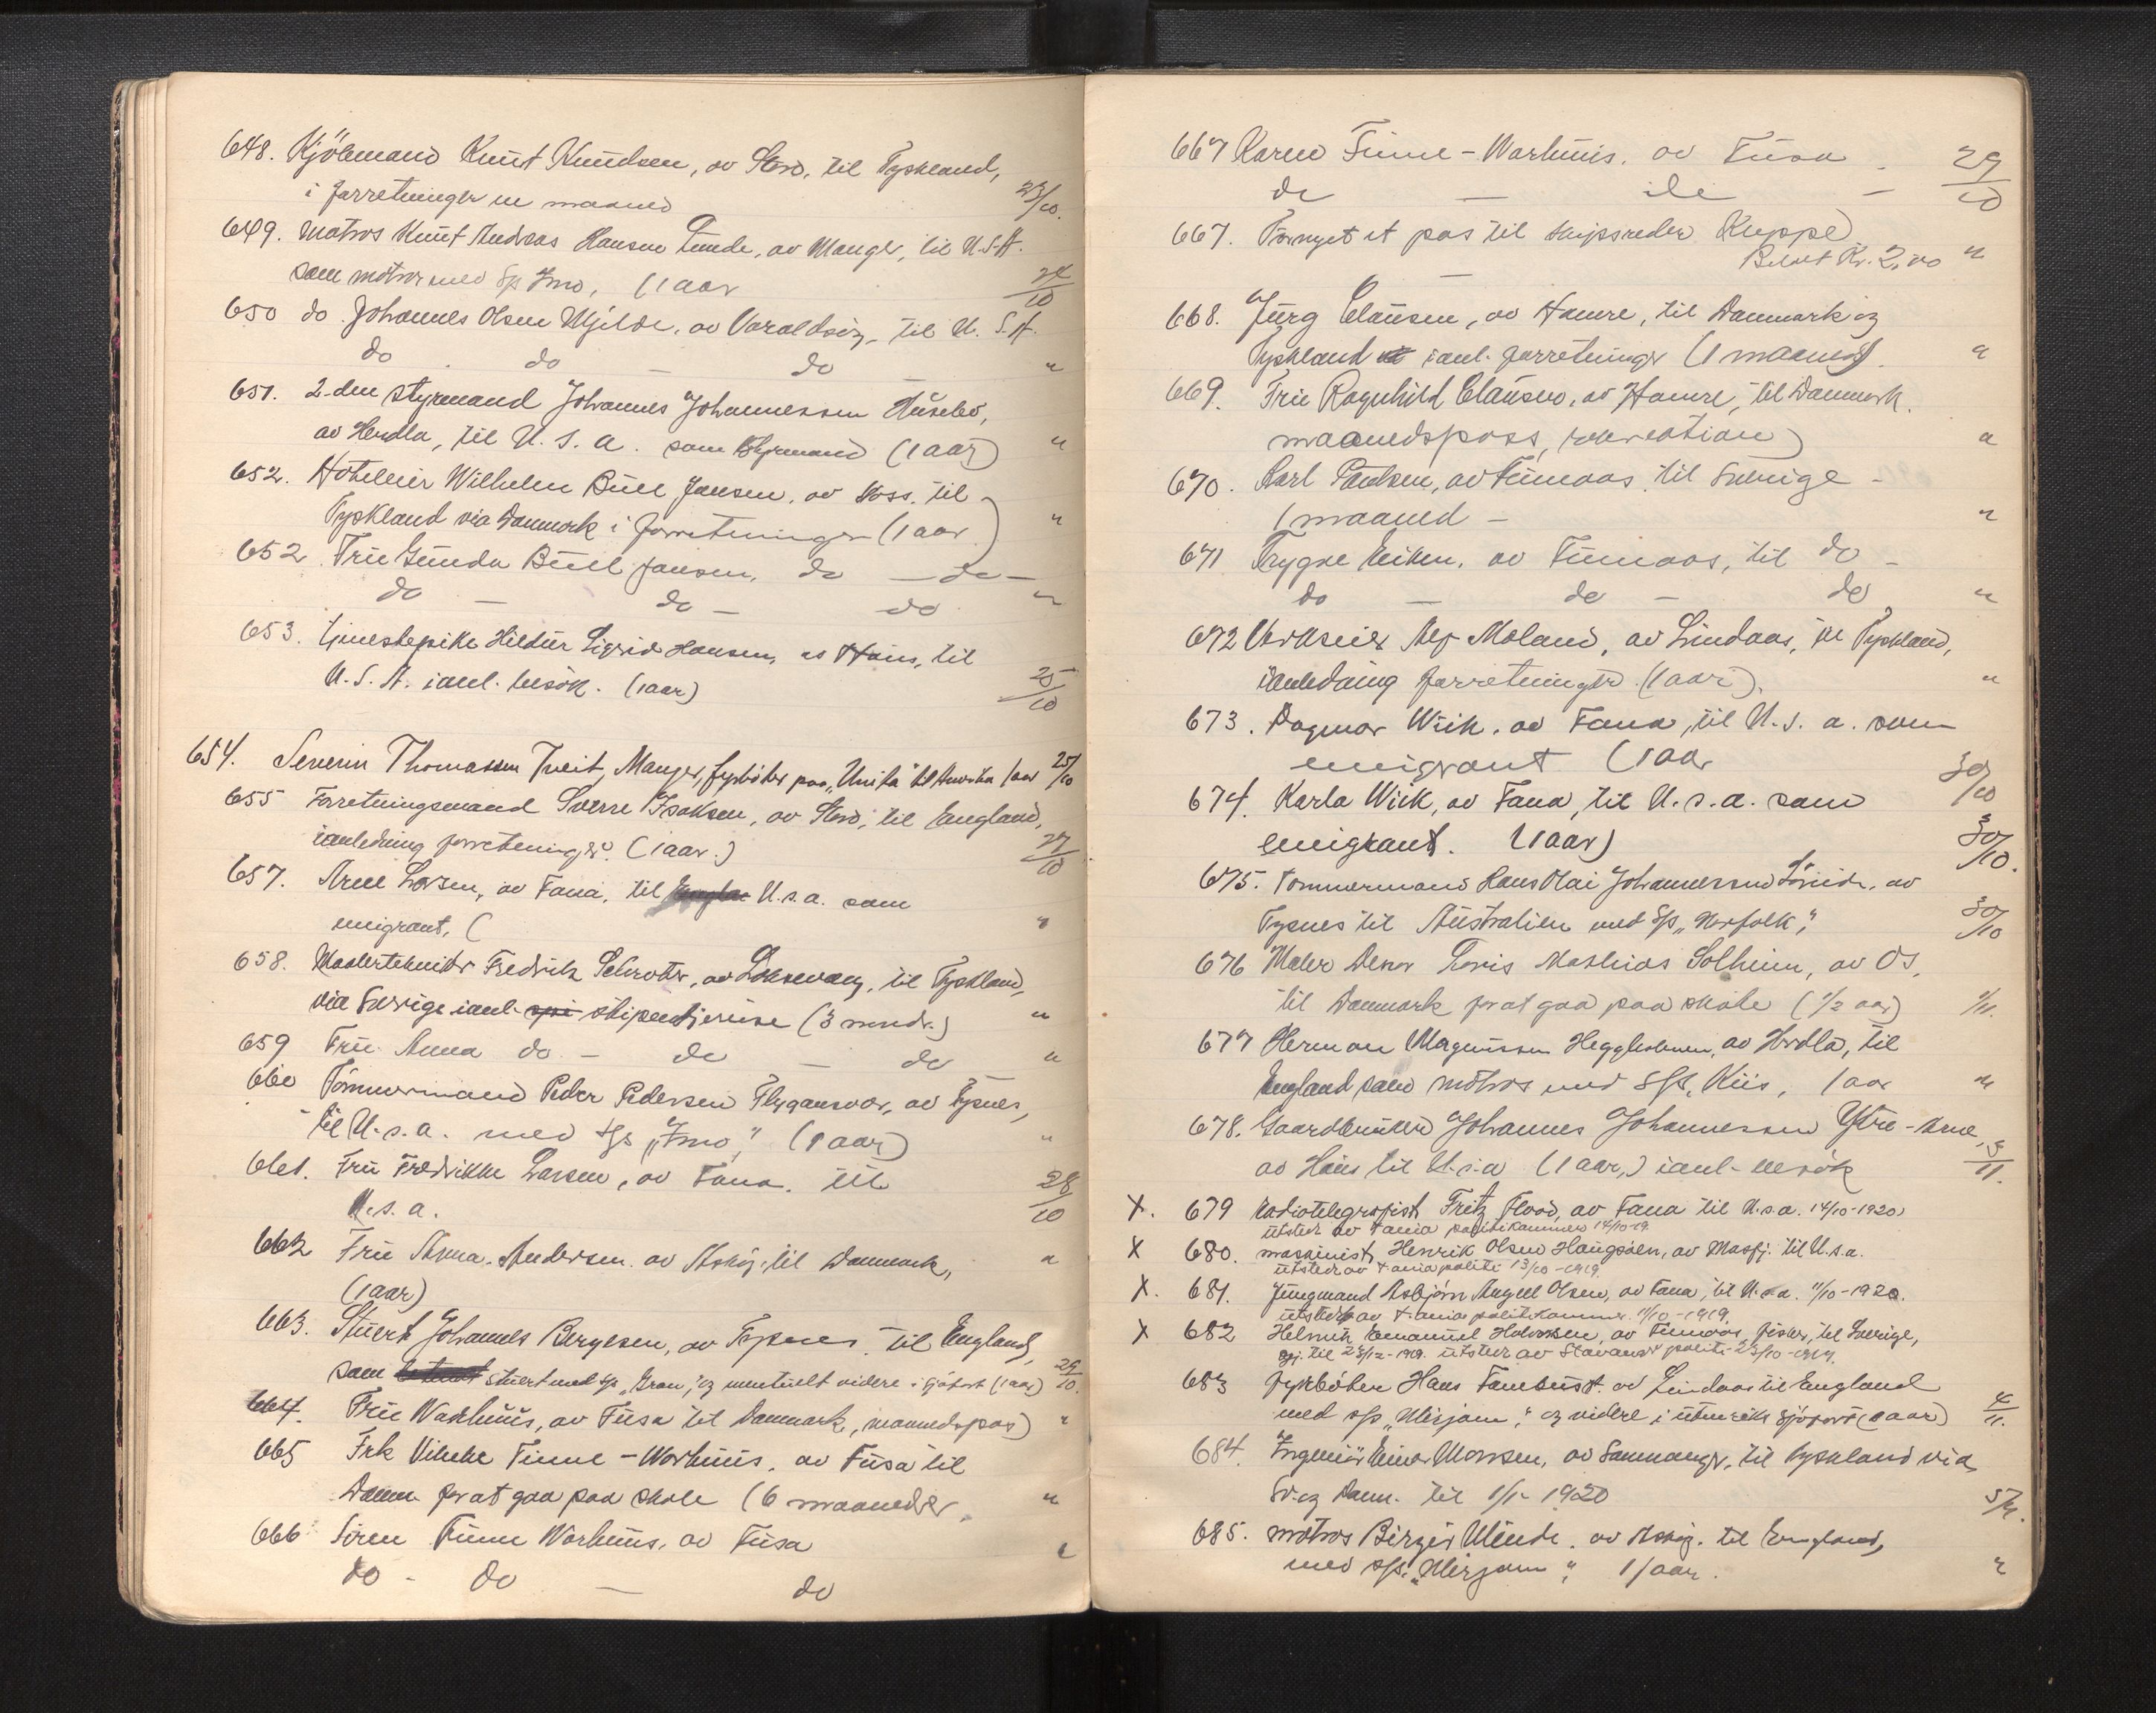 648. Kjöbmand Knut Knudsen, av Stord, til Tyskland,
i forretninger en maaned 23/10.
649. Matros Knut Andreas Hansen Tunde, av Manger, til U.S.A.
som matros med S/s Imo, (1 aar 24/10
650 do. Johannes Olsen Mjelde, av Varaldsöy, til U.S.A.
do do - do - "
651. 2-den styrmand Johannes Johannessen Husebö,
av Herdla, til U.S.a. som styrmand (1 aar) "
652. Hotelleier Wilhelm Bull Jansen, av Voss, til
Tyskland via Danmark i forretninger (1 aar) "
652 Fru Gunda Bull Jansen, do - do -
do - do - do "
653. Tjenestepike Hildur Sigrid Hansen, av Haus, til
U.S.A. ianl. besök. (1 aar) 25/10
654. Severin Thomassen Tveit, Manger, fyrböter paa "Unita" til Amerika 1 aar 25/10
655 Forretningsmand Sverre Isaksen, av Stord, til England,
ianledning forretninger. (1 aar.) 27/10
657. Arne Larsen, av Fana, til U.s.a. som
emigrant, ( "
658. Maskertekniker Fredrik Schrotter, av Laksevaag, til Tyskland,
via Sverige ianl. stipendiereise (3 mndr.) "
659 Fru Anna do - do - do - "
660 Tömmermand Peder Pedersen Flygansvær, av Tysnes,
til U.s.a. med S/s "Imo", (1 aar) "
661. Fru Fredrikke Larsen, av Fana, til
U.s.a. 28/10
662 Fru Anna Andersen av Asköy, til Danmark, "
(1 aar)
663. Stuert Johannes Bergesen, av Tysnes, til England,
som stuert med S/s "Gran", og eventuelt videre i sjöfart (1 aar) 29/10.
664. Fru Warhuus, av Fusa til Danmark, maanedspas) "
665 Frk Vibeke Finne-Warhuus, av Fusa til
Danm. for at gaa paa skole (6 maaneder, "
666 Siren Finne Warhuus, av Fusa "
do - do - do
667 Karen Finne-Warhuus, av Fusa 29/10
do - do -
667. Fornyet et pas til skipsreder Kuppe)
Betalt Kr. 2,00 "
668. Jürg Clausen, av Hamre, til Danmark og
Tyskland ianl. forretninger (1 maaned). "
669. Fru Ragnhild Clausen, av Hamre, til Danmark.
maanedspass, rekreation) "
670. Karl Paulsen, av Finnaas, til Sverige -
1 maaned - "
671 Trygve Eiken, av Finnaas, til do -
do - do - do "
672 Verkseier Alf Moland, av Lindaas, til Tyskland,
ianledning forretninger (1 aar). "
673. Dagmar Wiik, av Fana, til U.s.a. som
emigrant (1 aar 30/10
674. Karla Wiik, av Fana, til U.s.a. som
emigrant. (1 aar) 30/10.
675. Tömmermand Hans Olai Johannessen, av
Tysnes til Australien med S/s "Norfolk", 30/10
676 Maler Thoris Mathias Solheim, av Os,
til Danmark for at gaa paa skole (1/2 aar) 1/11.
677 Herman Magnussen Heggholmen, av Herdla, til
England som matros med S/s. Kiis, 1 aar "
678. Gaardbruker Johannes Johannessen Ytre-Arne,
av Haus til U.s.a (1 aar,) ianl. besök 3/11.
X. 679 Radiotelegrafist Fritz Flood, av Fana til U.s.a. 14/10-1920
utsted av X-ania politikammer 14/10-19.
X 680. maskinist, Henrik Olsen Haugsöen, av Masfj. til U.s.a.
utsted av X-ania politi 13/10-1919.
X. 681. Jungmand Asbjörn August Olsen, av Fana, til U.s.a. 11/10-1920.
utsted av X-ania politikammer 11/10-1919.
X 682 Helmik Emanuel Halvorsen, av Finnaas, fisker, til Sverige,
gj. til 23/12-1919. utsted av Stavanger politi 23/10-1919.
683 Fyrböter Hans Fanebust. av Lindaas til England
med s/s "Mirjam", og videre i utenriks sjöfart (1 aar) 4/11.
684. Ingeniör Einar Monsen, av Samnanger, til Tyskland via
Sv. og Danm. til 1/1-1920 5/11.
685. matros Birger Minde. av Asköy. til England,
med s/s. "Mirjam", 1 aar. "